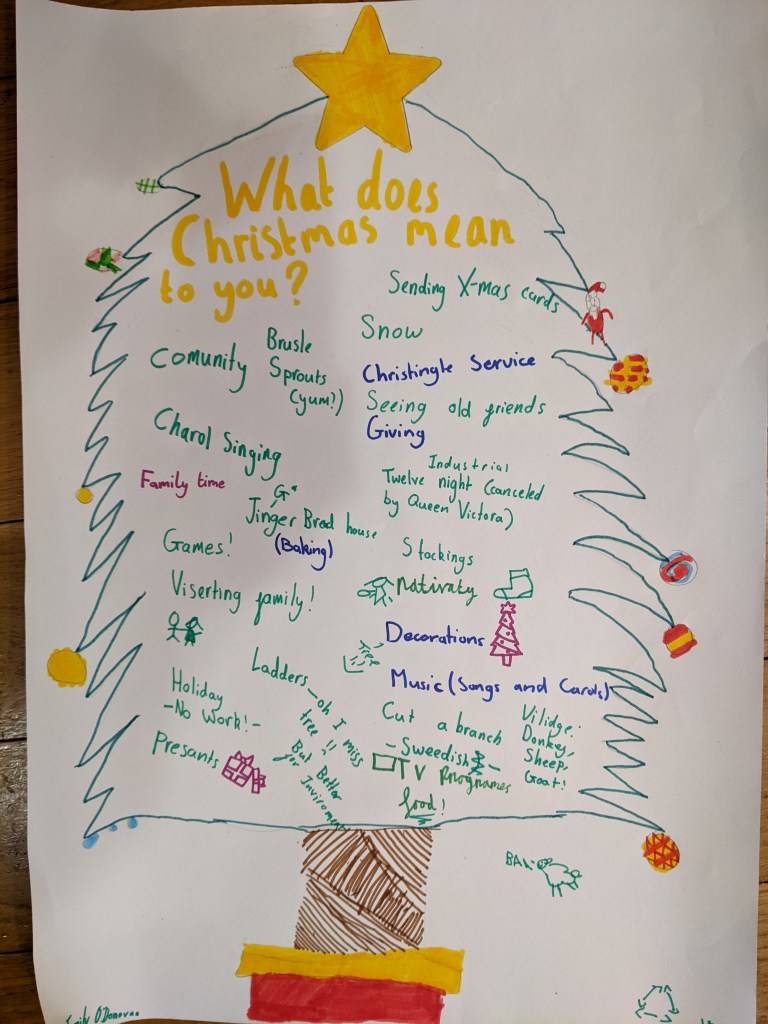 What does
Christmas mean
to you?
Sending X-mas cards
Snow
Brusle
Sprouts
(yum?)
Comunity
Christingle Service
Seeing old friends
Giving
Charol Singing
Family time
Industrial
Twelve night (canceled
by Queen Victora)
G
Jinger Bread house
(Baking)
Games!
Stockings
Viserting family!
Nativaty
Decorations
Ladders - oh I miss
tree !!
But Better
for
Inviroment
Music (Songs and Carols)
Holiday
- No Work! -
Cut a branch
- Sweedish -
Vilidge:
Donkey,
Sheep,
Goat!
Presants
TV Programes
food!
BAA!
O'Donovan